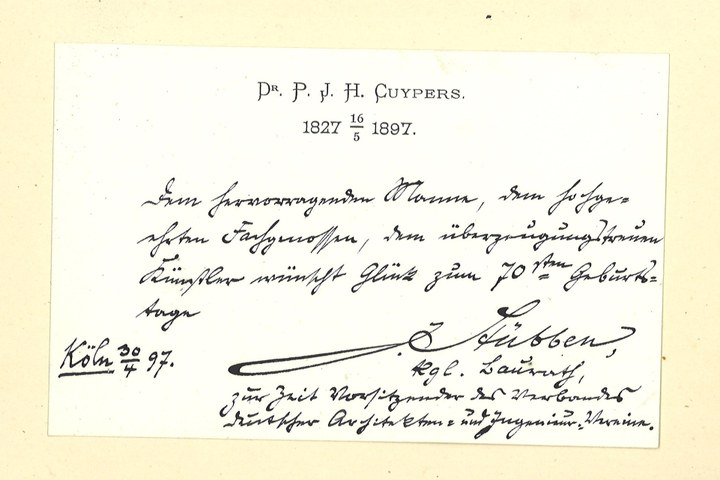 Dr. P. J. H. CUYPERS.
1827 16/5 1897.
Dem hervorragenden Manne, dem hochge=
ehrten Fachgenossen, dem überzeugungstreuen
Künstler wünscht Glück zum 70sten Geburts=
tage
J. Stübben,
Köln 30/4 97.
kgl. Baurath,
zur Zeit Vorsitzender des Verbandes
deutscher Architekten= und Ingenieur=Vereine.